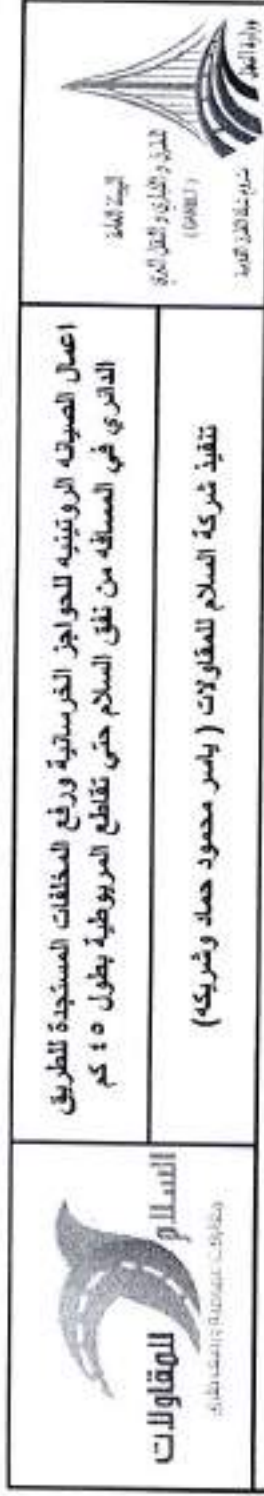 الهيئة العامة
للطرق والكباري والنقل البري
(GARBLT)
وزارة النقل
اعمال الصيانه الروتينيه للحواجز الخرسانية ورفع المخلفات المستجدة للطريق
الدائري في المسافه من نفق السلام حتي تقاطع المريوطية بطول ٤٥ كم
تنفيذ شركة السلام للمقاولات ( ياسر محمود حماد وشريكه)
السلام
للمقاولات